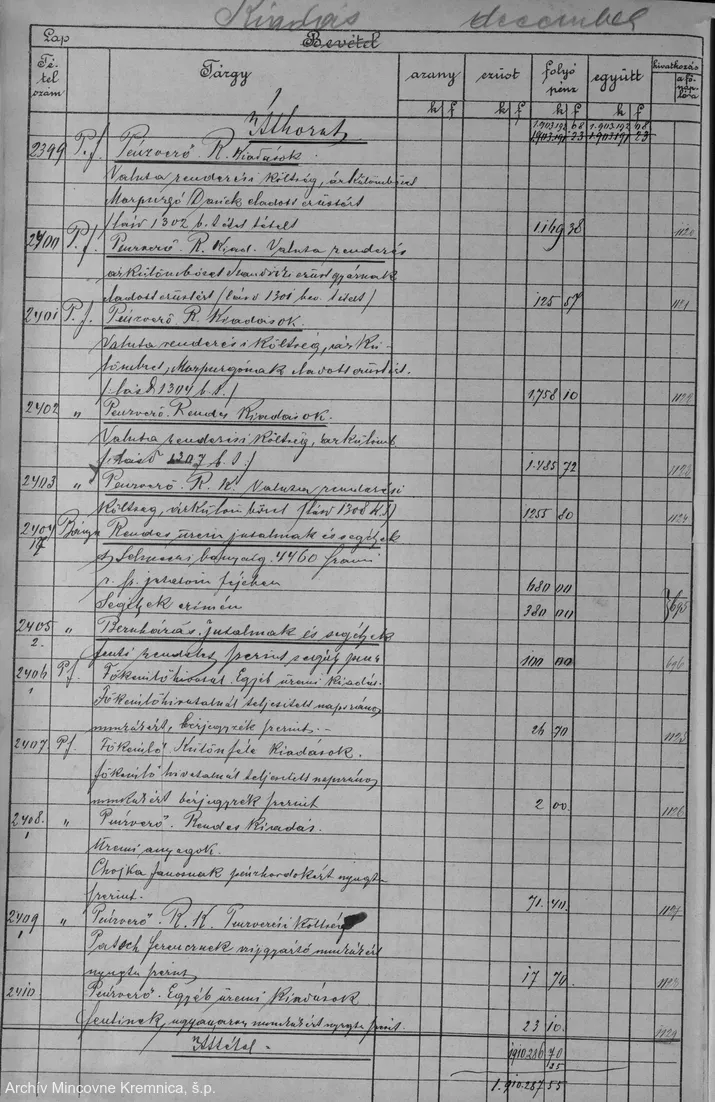 Kiadás december
Lap Bevétel
Tétel szám Tárgy arany ezüst folyó pénz együtt hivatkozás a főnaplóra
k f k f k f k f
Áthozat 1.903.192 68 1.903.192 68
1.903.191 23 1.903.191 23
2399 P.f. Pénzverő. R. Kiadások.
Valuta rendezési költség, árkülömbözet
Marpurgó Dánek eladott ezüstért
(lásd 1302 b. tétel tételt 1169 38 1120
2400 P.f. Pénzverő. R. Kiad. Valuta rendezés
árkülömbözet ezüst gyárnak
eladott ezüstért (lásd 1301 bev. tételt) 125 57 1121
2401 P.f. Pénzverő. R. Kiadások.
Valuta rendezési költség, árkü-
lömbzet, Marpurgónak eladott ezüstért.
(lásd 1304 b. t.) 1.758 10 1122
2402 " Pénzverő. Rendes Kiadások.
Valuta rendezési költség, árkülömb.
(lásd 1307 b. t.) 1.485 72 1123
2403 " Pénzverő. R. K. Valuta rendezési
költség, árkülömbözet (lásd 1308 b. t.) 1255 80 1124
2404 Bánya Rendes üzem jutalmak és segélyek
bányaig. 4460 számú
r. sz. jutalom fejében 680 00
Segélyek czímén 380 00 695
2405 " jutalmak és segélyek
2. fenti rendelet szerint segély pénz 100 00 696
2406 P.f. Főkémlőhivatal. Egyéb üzemi kiadás.
1 Főkémlőhivatalnál teljesített napszámos
munkáért, bérjegyzék szerint. - 26 70 1125
2407. P.f. Főkémlő. Különféle Kiadások.
főkémlő hivatalnál teljesített napszámos
munkáért bérjegyzék szerint 2 00. 1126
2408. " Pénzverő. Rendes Kiadás.
1 Üzemi anyagok.
Chojka Jánosnak pénzhordókért nyugta
szerint. 71 40. 1127
2409 " Pénzverő. R. K. Pénzverési költség
1 Ferencznek munkáért
nyugta szerint 17 70. 1128
2410 Pénzverő. Egyéb üzemi Kiadások
fentinek, ugyanazon munkáért nyugta szerint. 23 10. 1129
Áttétel - 1910.286 70
25
1.910.287 55
Archív Mincovne Kremnica, š.p.